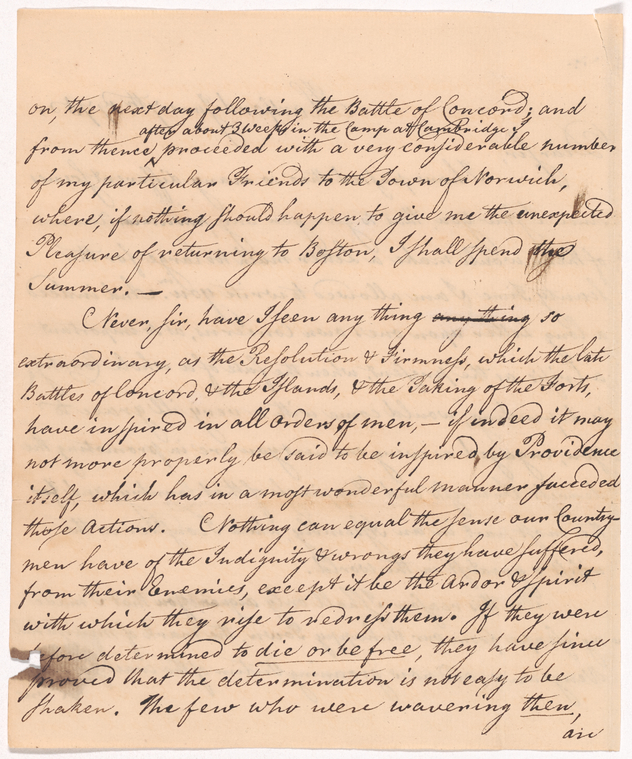 on, the next day following the Battle of Concord; and
after about 3 Weeks in the Camp at Cambridge &
from thence proceeded with a very considerable number
of my particular Friends to the Town of Norwich,
where, if nothing should happen to give me the unexpected
Pleasure of returning to Boston, I shall spend the
Summer. —
Never, Sir, have I seen any thing any thing so
extraordinary, as the Resolution & Firmness, which the late
Battles of Concord, & the Islands, & the Taking of the Forts,
have inspired in all Orders of men, – if indeed it may
not more properly be said to be inspired by Providence
itself, which has in a most wonderful manner succeeded
those Actions. Nothing can equal the sense our Country-
men have of the Indignity & wrongs they have suffered,
from their Enemies, except it be the Ardor & Spirit
with which they rise to redress them. If they were
efore determined to die or be free, they have since
proved that the determination is not easy to be
shaken. The few who were wavering then,
are